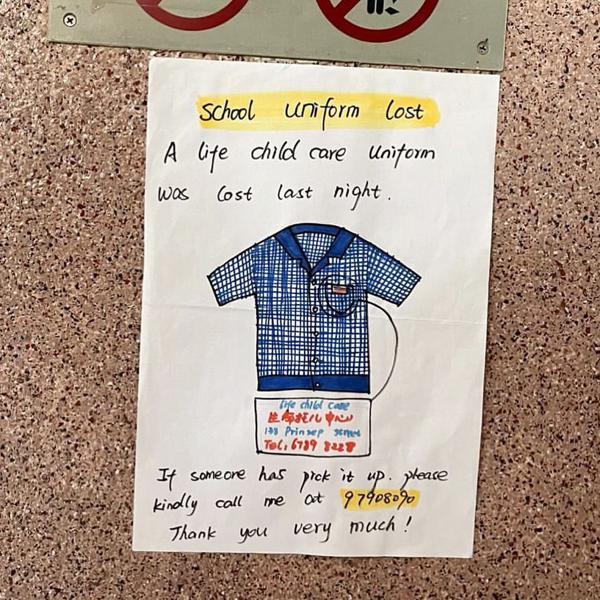 School uniform lost
A life child care uniform
was lost last night.
life child care
生命托儿中心
133 Prinsep street
Tel: 6789 8228
If someone has pick it up. please
kindly call me at 97908090
Thank you very much!